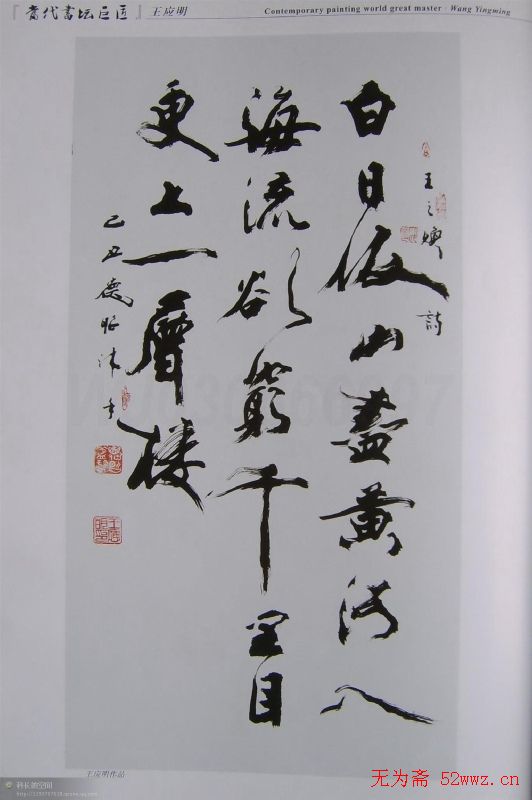 『當代書坛巨匠』王应明
Contemporary painting world great master · Wang Yingming
王之煥 詩
白日依山盡黄河入
海流欲窮千里目
更上一層樓
己丑德昭沐手
王应明作品
科长的空间
无为斋 52wwz.cn